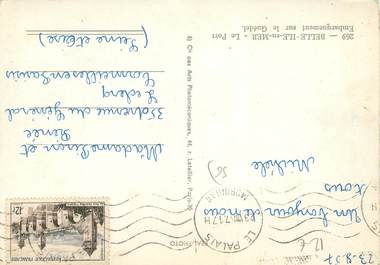 269 — BELLE-ILE-en-MER - Le Port
Embarquement sur le Guédel.
23-8-57
Un bonjour de nous
tous
Michèle
LE PALAIS
MORBIHAN
© Cie des Arts Photomécaniques, 44, r. Letellier, Paris-XV
Madame Pinson et
René
35 avenue du Général
Leclerc
Cormeilles en Parisis
(Seine et Oise)
12F